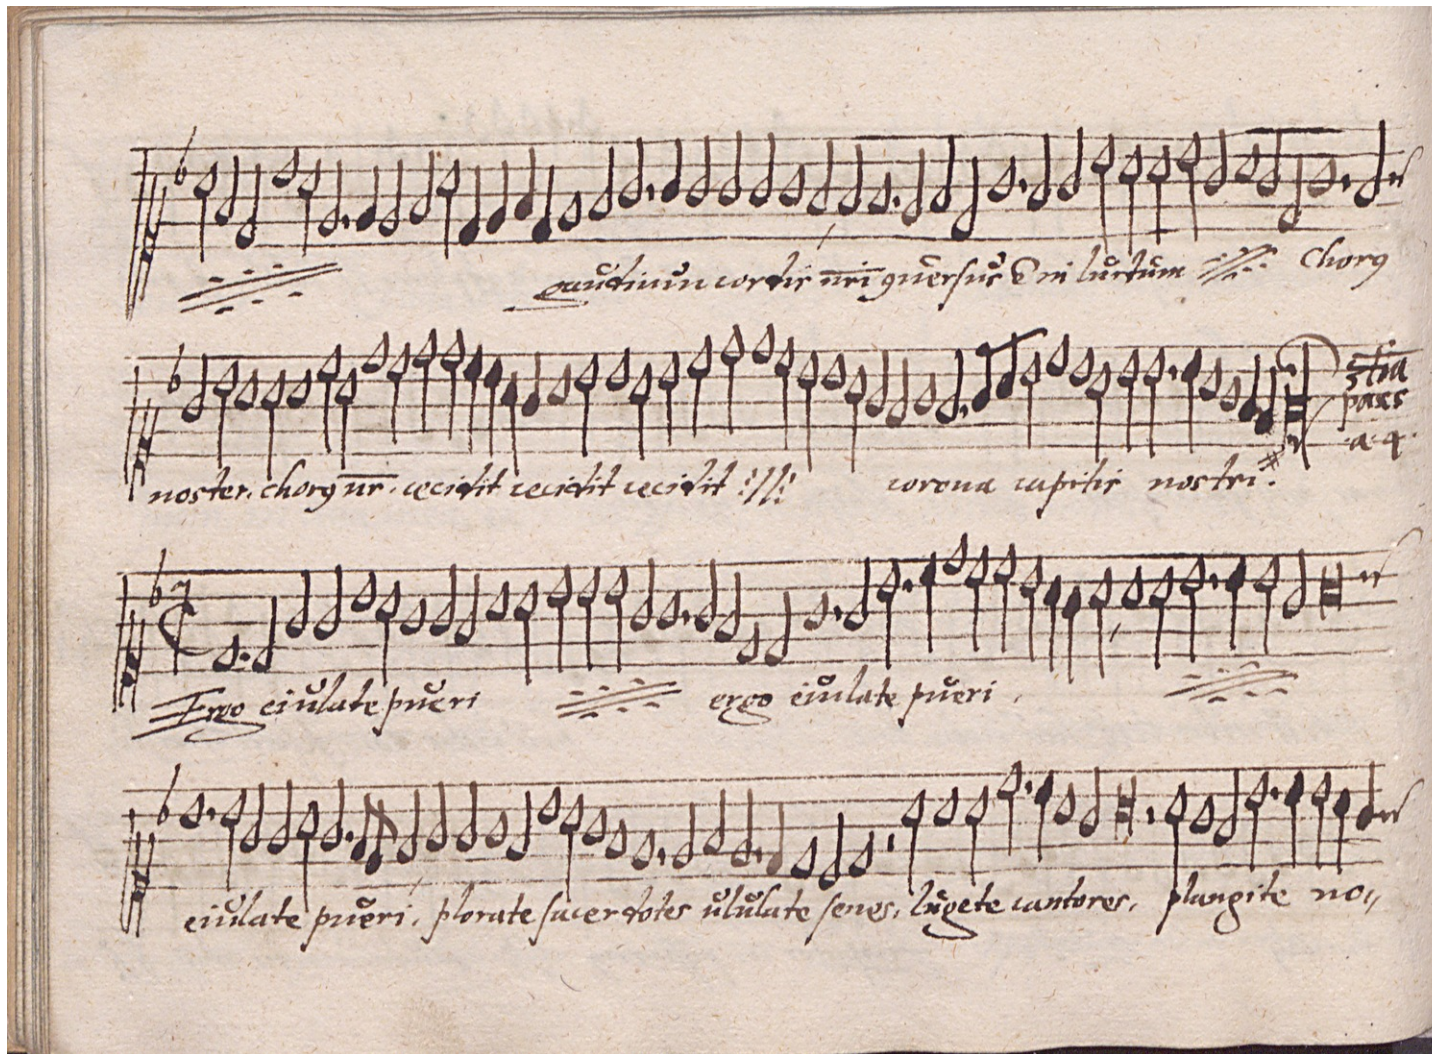 gaudium cordis nr̄i 9uersus ē in luctum chorg
noster. chorg nr̄. cecidit cecidit cecidit :// corona capitis nostri.
3tia
pars
.a.4.
Ergo eiulate pueri ergo eiulate pueri.
eiulate pueri, plorate sacerdotes ululate senes, lugete cantores, plangite no,,